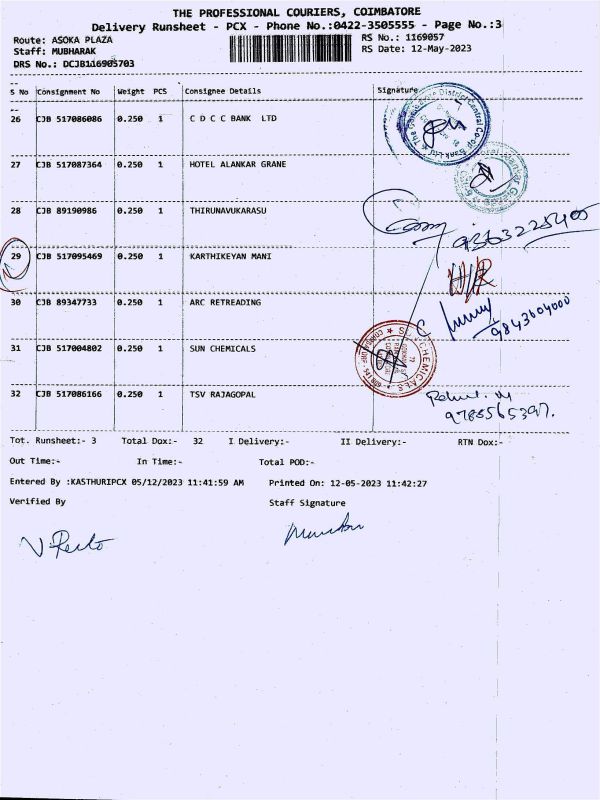 THE PROFESSIONAL COURIERS, COIMBATORE
Delivery Runsheet - PCX - Phone No.:0422-3505555 - Page No.:3
Route: ASOKA PLAZA RS No.: 1169057
Staff: MUBHARAK RS Date: 12-May-2023
DRS No.: DCJB116905703
S No Consignment No Weight PCS Consignee Details Signature
26 CJB 517086086 0.250 1 C D C C BANK LTD
27 CJB 517087364 0.250 1 HOTEL ALANKAR GRANE
28 CJB 89190986 0.250 1 THIRUNAVUKARASU
9363225405
29 CJB 517095469 0.250 1 KARTHIKEYAN MANI
30 CJB 89347733 0.250 1 ARC RETREADING
9843604000
31 CJB 517004802 0.250 1 SUN CHEMICALS
32 CJB 517086166 0.250 1 TSV RAJAGOPAL
Tot. Runsheet:- 3 Total Dox:- 32 I Delivery:- II Delivery:- RTN Dox:-
Out Time:- In Time:- Total POD:-
Entered By :KASTHURIPCX 05/12/2023 11:41:59 AM Printed On: 12-05-2023 11:42:27
Verified By Staff Signature